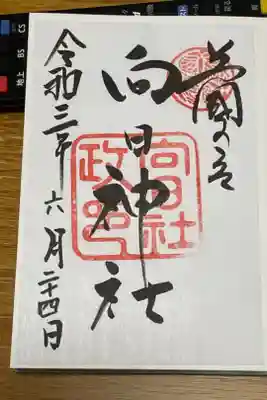 向日神社
令和三年六月二十四日
向日社
CS
BS
地上